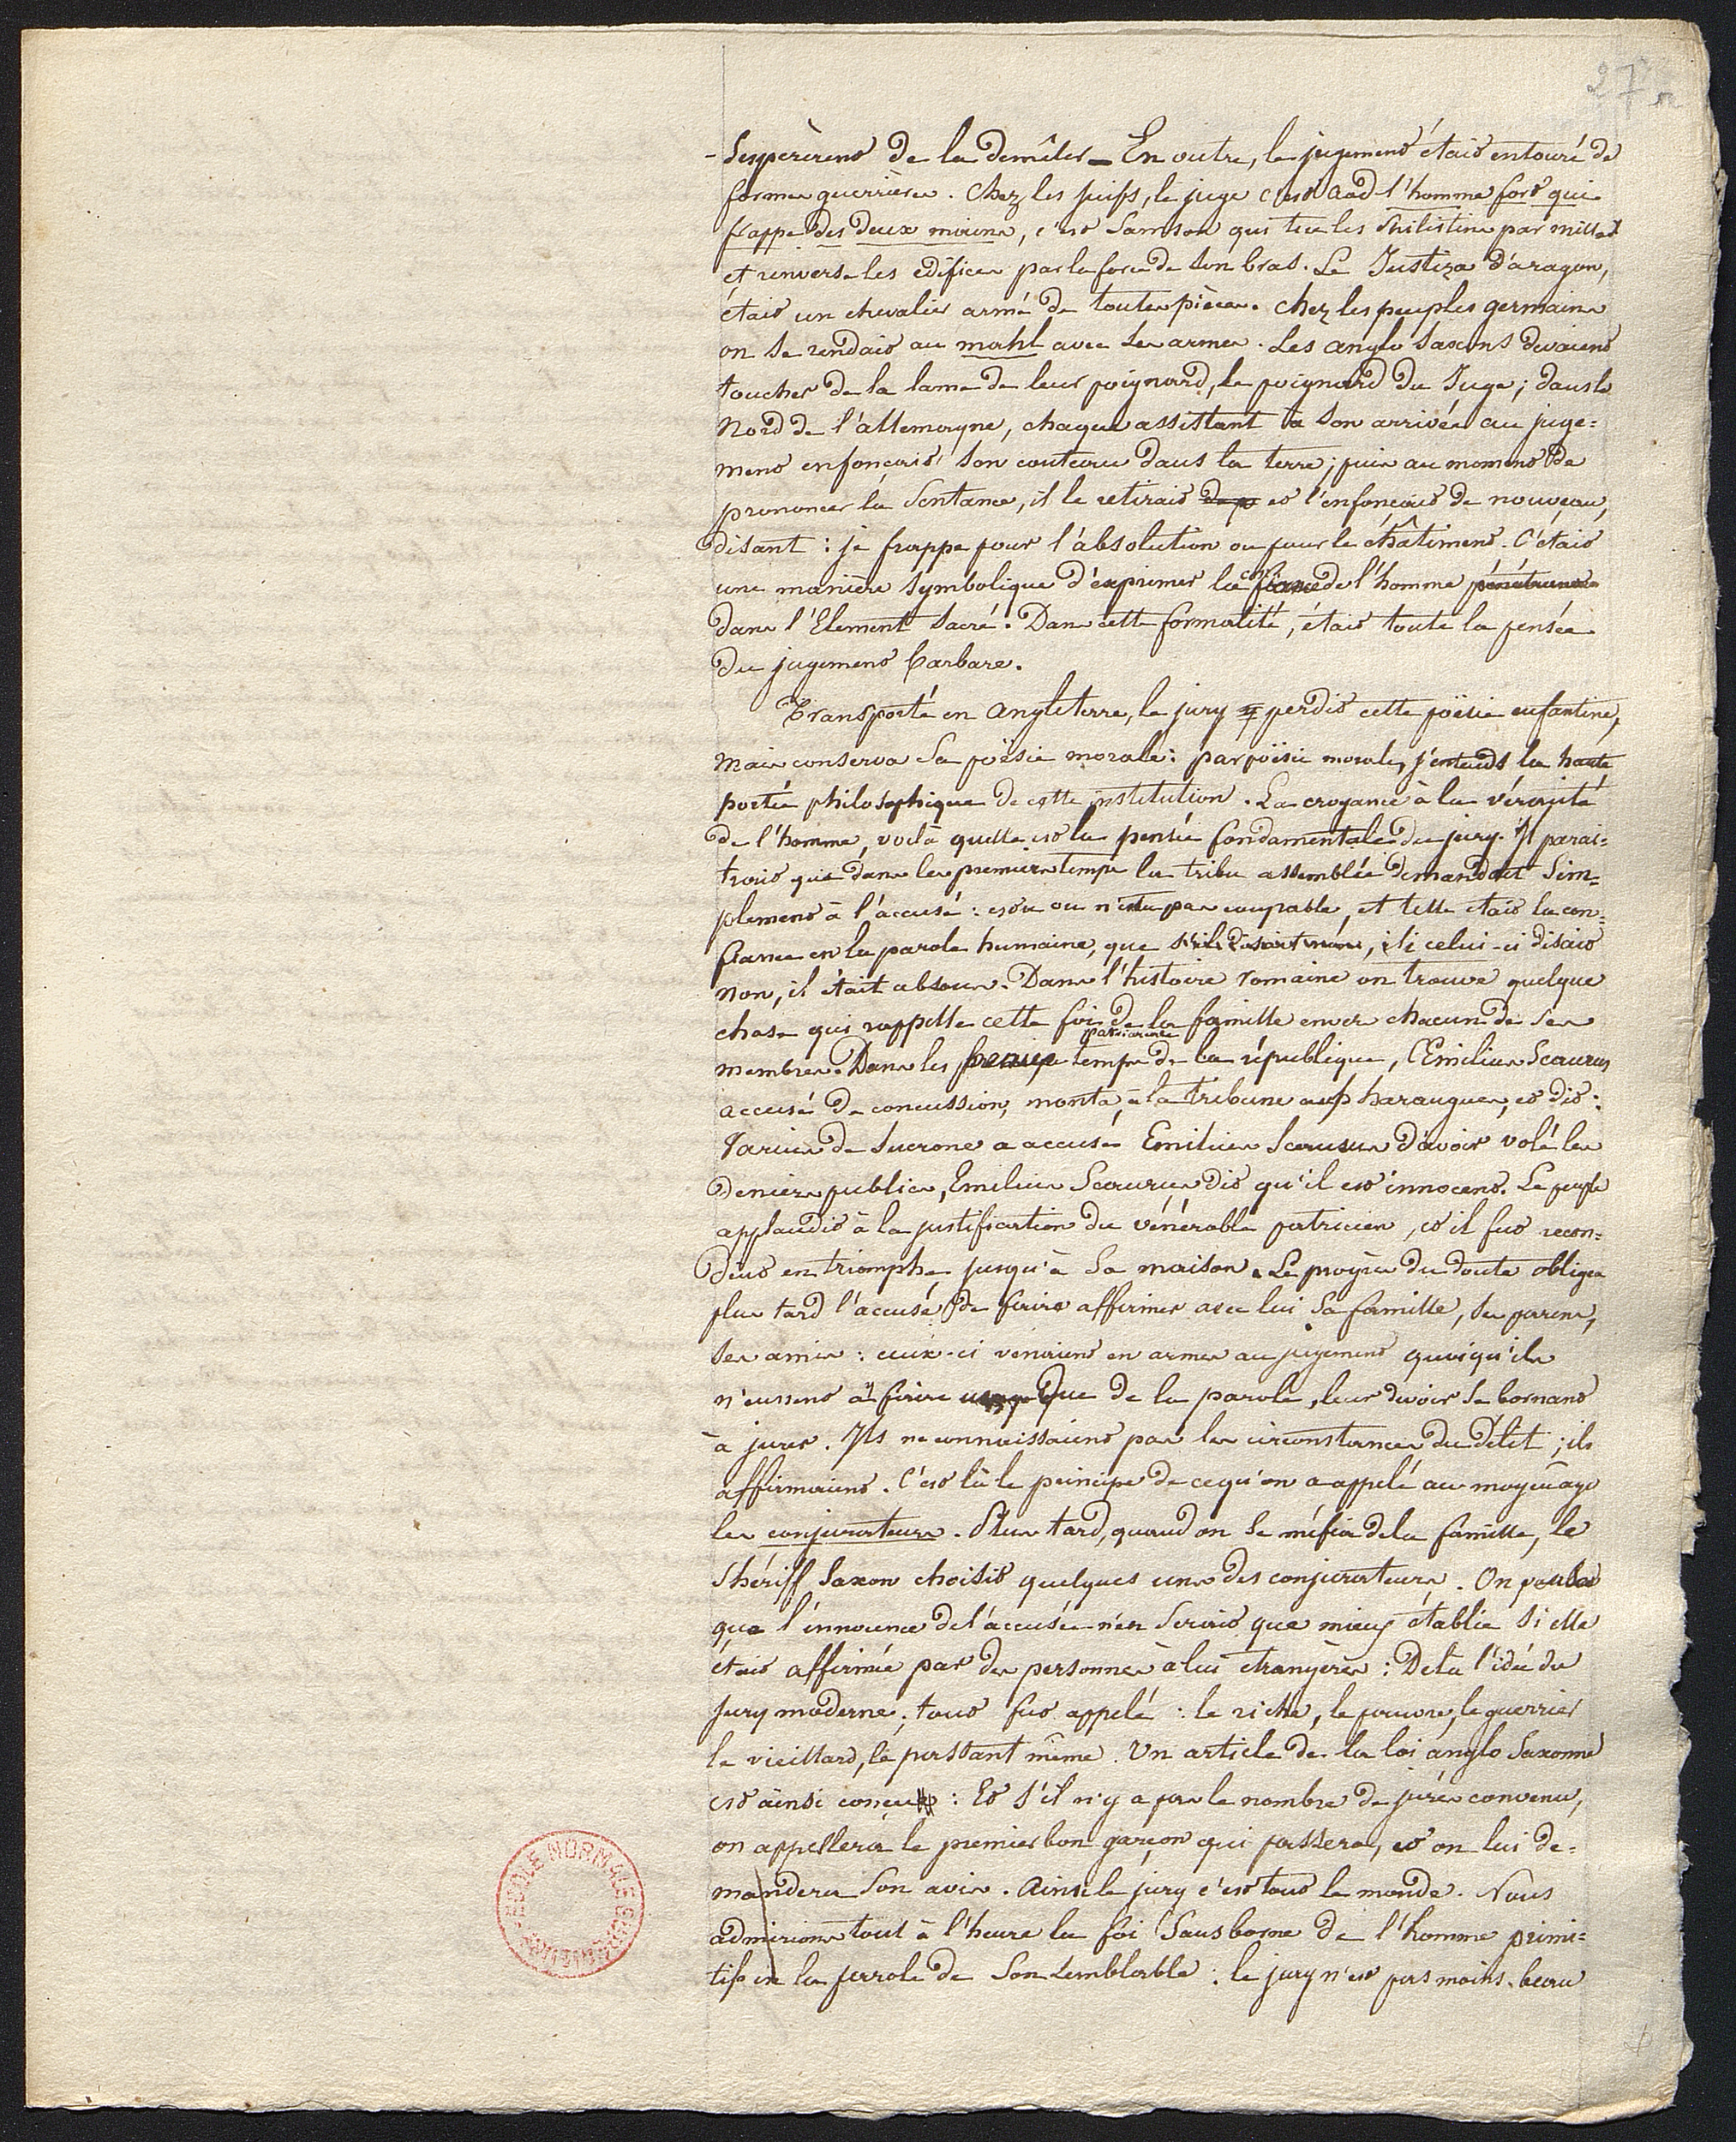 27
-sespérèrent de la démêler — En outre, le jugement était entouré de
formes guerrières. Chez les juifs, le juge c'est Aod l'homme fort qui
frappe des deux mains, c'est Samson qui tue les Philistins par milles
et renverse les édifices par la force de son bras. Le Justiza d'aragon,
était un chevalier armé de toutes pièces. Chez les peuples germains
on se rendait au mahl avec ses armes. Les anglo saxons devaient
toucher de la lame de leur poignard, le poignard du Juge; dans le
Nord de l'allemagne, chaque assistant à son arrivée au juge=
ment enfonçait son couteau dans la terre; puis au moment de
prononcer la sentance, il le retirait et l'enfonçait de nouveau,
disant : je frappe pour l'absolution ou pour le châtiment. C'était
une manière symbolique d'exprimer la confiance de l'homme pénétrance
dans l'Element sacré. Dans cette formalité, était toute la pensée
du jugement barbare.
Transporté en Angleterre, le jury perdit cette poësie enfantine,
mais conserva sa poësie morale: par poësie morale, j'entends la haute
portée philosophique de cette institution. La croyance à la véracité
de l'homme, voilà quelle est la pensée fondamentale du jury. Il parai=
trait que dans les premiers temps la tribu assemblée demandait sim=
plement à l'accusé : es tu ou n'es tu pas coupable, et telle était la con=
fiance en la parole humaine, que s'il disait , si celui-ci disait
non, il était absous. Dans l'histoire romaine on trouve quelque
chose qui rappelle cette foi de la famille envers chacun de ses
membres. Dans les temps de la république, Emilius Scaurus
accusé de concussion, monta à la tribune aux harangues, et dit :
Varius de Sucrone a accusé Emilius Scaurus d'avoir volé les
deniers publics, Emilius Scaurus dit qu'il est innocent. Le peuple
applaudit à la justification du vénérable patricien, et il fut recon=
duit en triomphe jusqu'à sa maison. Le progrès du doute obligea
plus tard l'accusé de faire affirmer avec lui sa famille, ses parens,
ses amis : ceux-ci venaient en armes au jugement quoiqu'ils
n'eussent à faire usage que de la parole, leur devoir se bornant
à jurer. Ils ne connaissaient pas les circonstances du délit ; ils
affirmaient. C'est là le principe de ce qu'on a appelé au moyen age
les conjurateurs. Plus tard, quand on se méfia de la famille, le
Shériff saxon choisit quelques uns des conjurateurs. On pensa
que l'innocence de l'accusé n'en serait que mieux établie si elle
était affirmée par des personnes à lui etrangères : De là l'idée du
jury moderne; tout fut appelé : le riche, le pauvre, le guerrier
le vieillard, le passant même. Un article de la loi anglo saxonne
est ainsi conçu : Et s'il n'y a pas le nombre de jurés convenu,
on appellera le premier bon garçon qui passera, et on lui de=
mandera son avis. Ainsi le jury c'est tout le monde. Nous
admirions tout à l'heure la foi sans borne de l'homme primi=
tif en la parole de son semblable : le jury n'est pas moins beau
ECOLE NORMALE SUPERIEURE